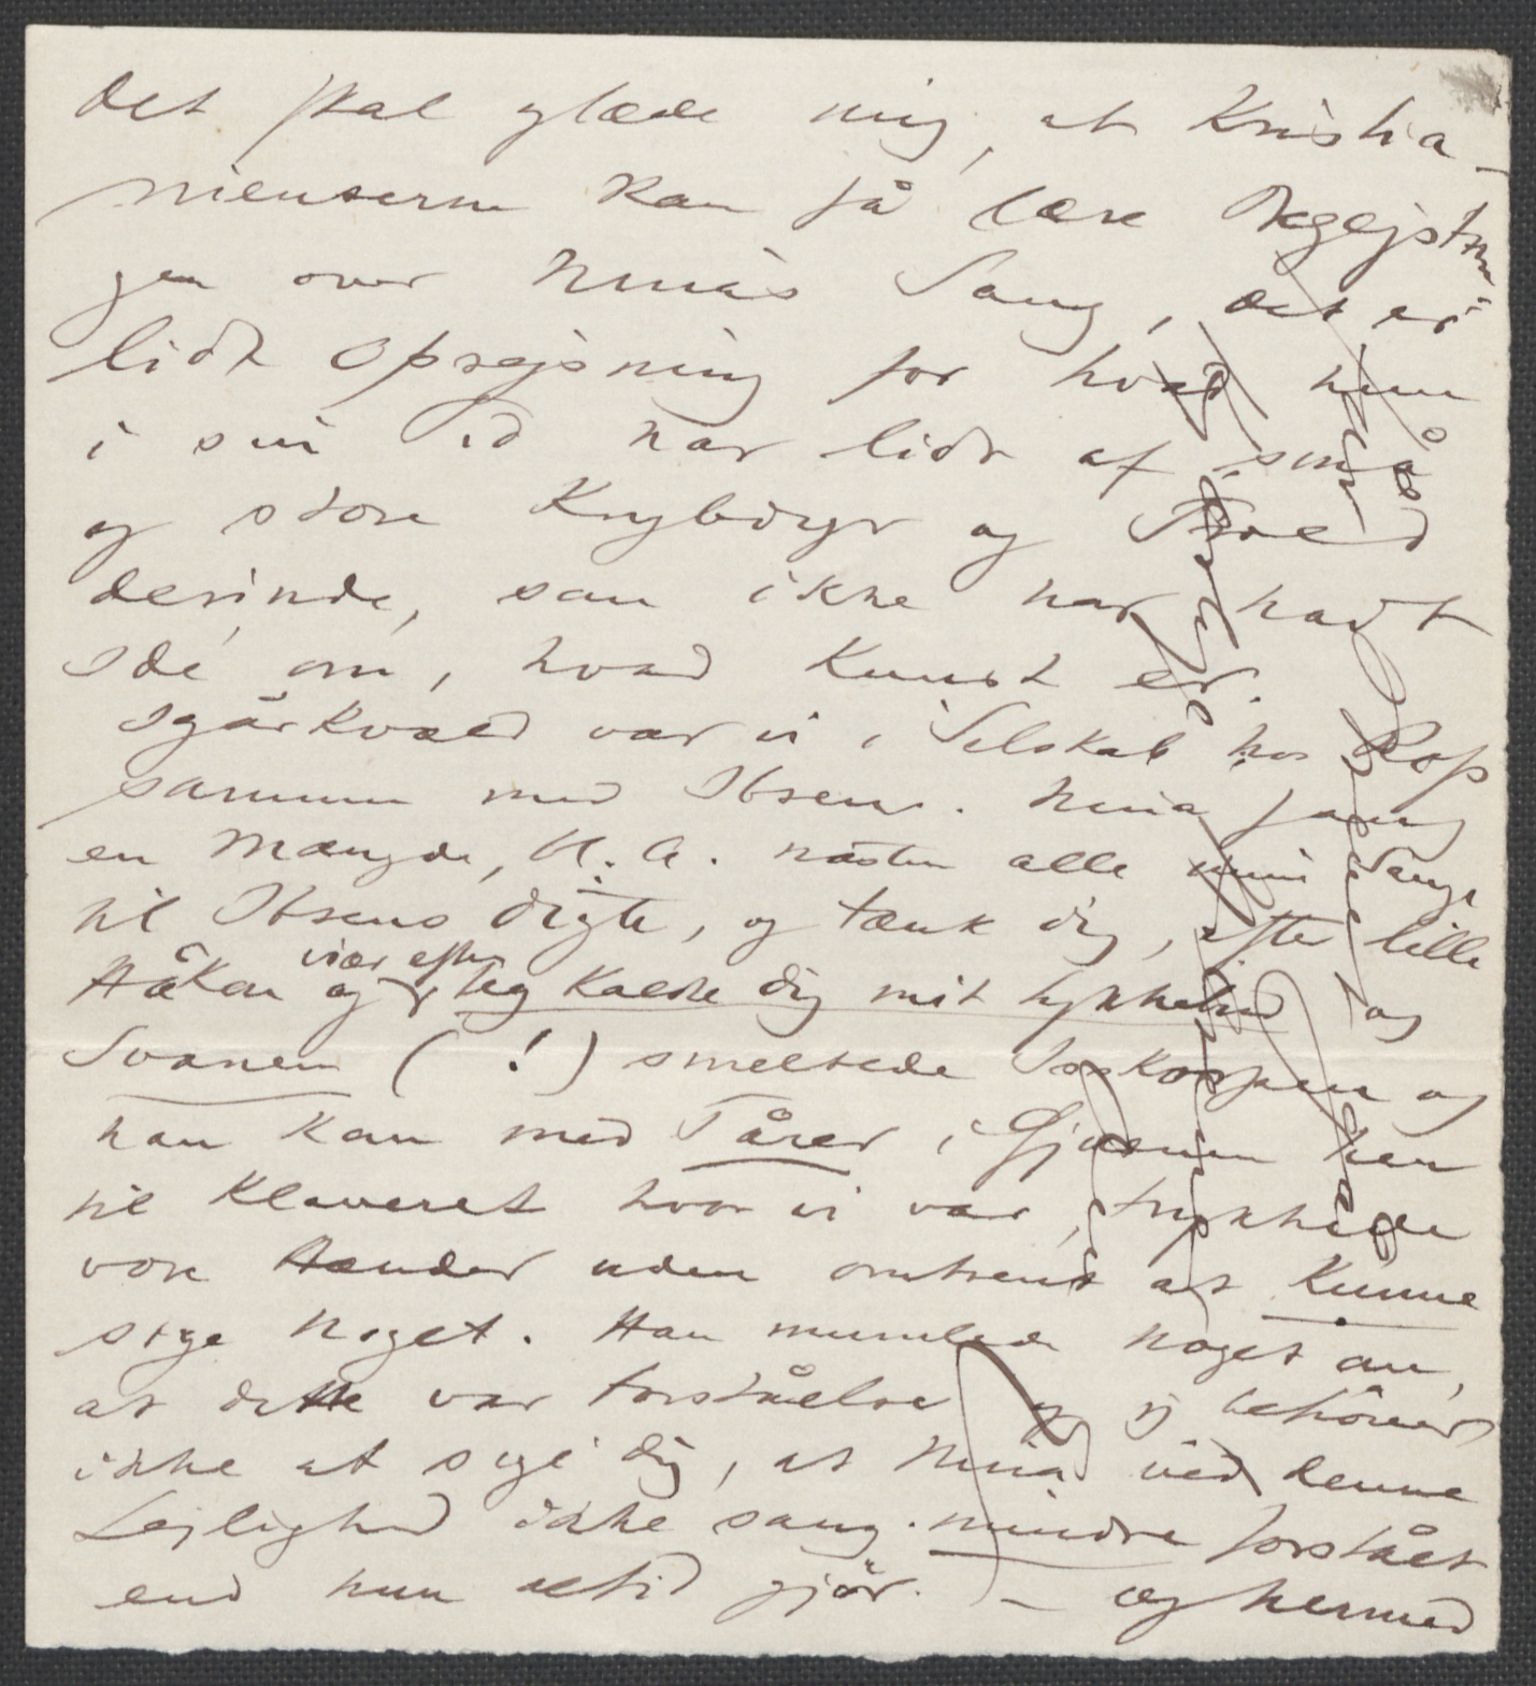 det skal glæde mig, at Kristia-
nienserne kan få læse Begejstrin-
gen over Ninas Sang, det er
lidt Oprejsning for hvad hun
i sin Tid har lidt af små
og store Krybdyr og
derinde, som ikke har havt
Idé om, hvad Kunst er.
Igårkvæld var vi i Selskab hos Rop
sammen med Ibsens. Nina sang
en Mængde, bl. a. næsten alle mine Sange
til Ibsens Digte, og tænk dig, efter lille
Håkon og især efter Jeg kaldte dig mit Lykkebud og
Svanen (!) smeltede Isskorpen og
han kom med Tårer i Øjnene hen
til Klaveret hvor vi var, trykkede
vore Hænder uden omtrent at kunne
sige noget. Han mumlede noget om,
at dette var Forståelse og jeg behöver
ikke at sige dig, at Nina ved denne
Lejlighed ikke sang mindre forstået
end hun altid gjör. – Og hermed